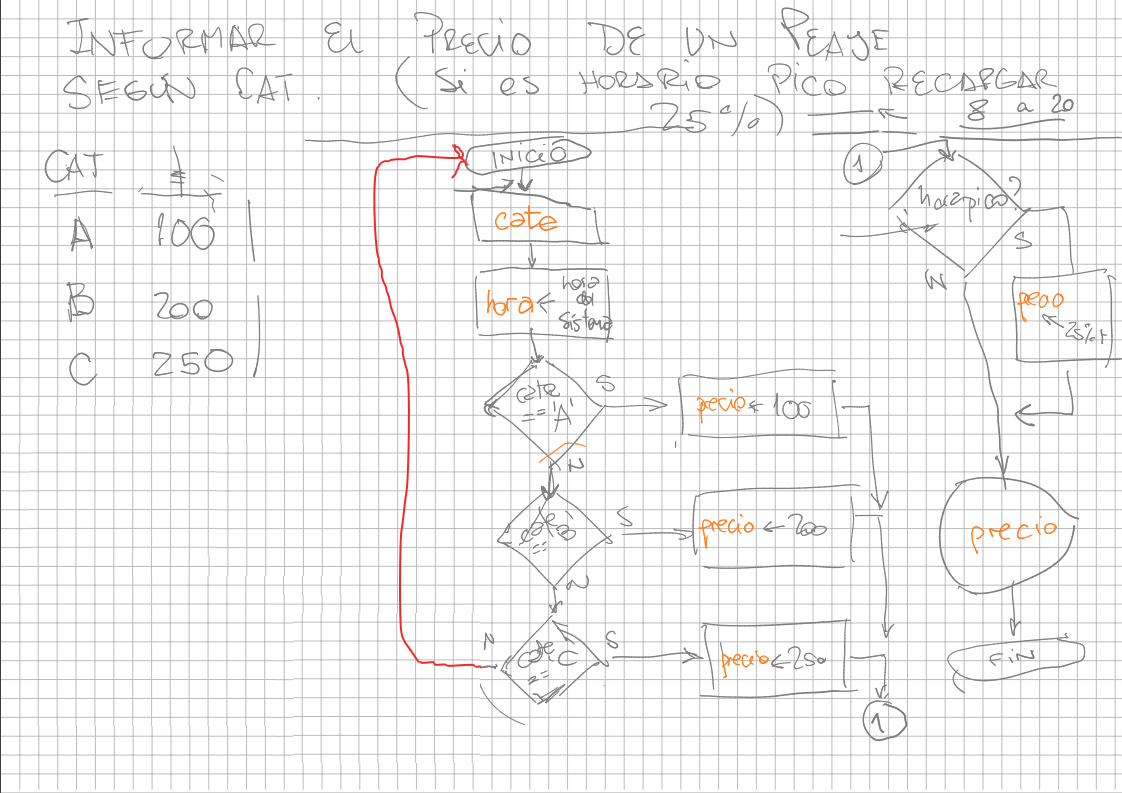 INFORMAR El PRECIO DE UN PEAJE
SEGÚN CAT. (Si es HORARIO PICO RECARGAR
25%)
8 a 20
CAT $
A 100
B 200
C 250
INICIO
cate
hora ← hora
del
sistema
cate
== 'A'
S
N
precio ← 100
cate B
==
S
N
precio ← 200
cate C
==
N
S
precio ← 250
1
1
hora pico?
S
N
precio
← 25%+
precio
FIN